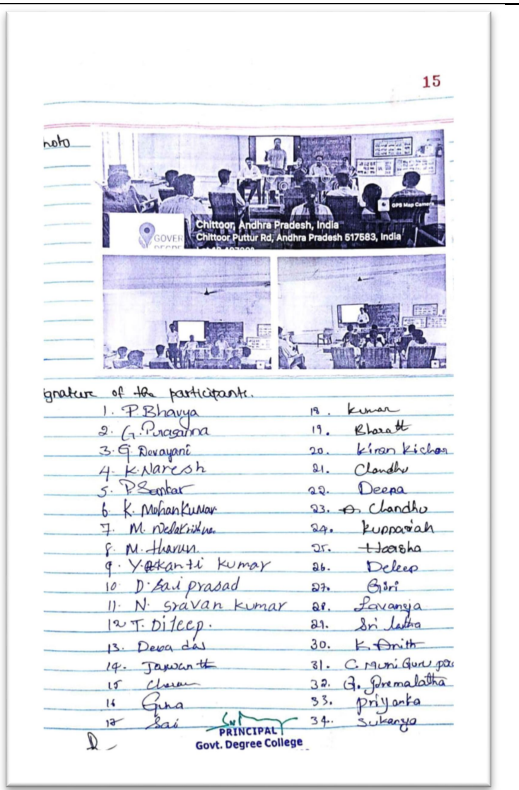 15
hoto
GPS Map Camera
Chittoor, Andhra Pradesh, India
GOVER
Chittoor Puttur Rd, Andhra Pradesh 517583, India
ignature of the participants.
1. P. Bhavya
2. G. Prasanna
3. G Devayani
4. K. Naresh
5. P. Sankar
6 K. Mohan Kumar
7. M.
8. M. tharun.
9. kanti kumar
10 D. Sai prasad
11. N. sravan kumar
12 T. Dileep.
13. Deva das
14. Jaswanth
15 charan
16 Guna
17 Sai
18. kumar
19. Bharath
20. kiran kishor
21. Chandhu
22. Deepa
23. Chandhu
24. kuppaiah
25. Harsha
26. Deleep
27. Giri
28. Lavanya
29. Sri latha
30. K. Anith
31. C. Muni Guru
32. G. Premalatha
33. priyanka
34. Sukanya
PRINCIPAL
Govt. Degree College